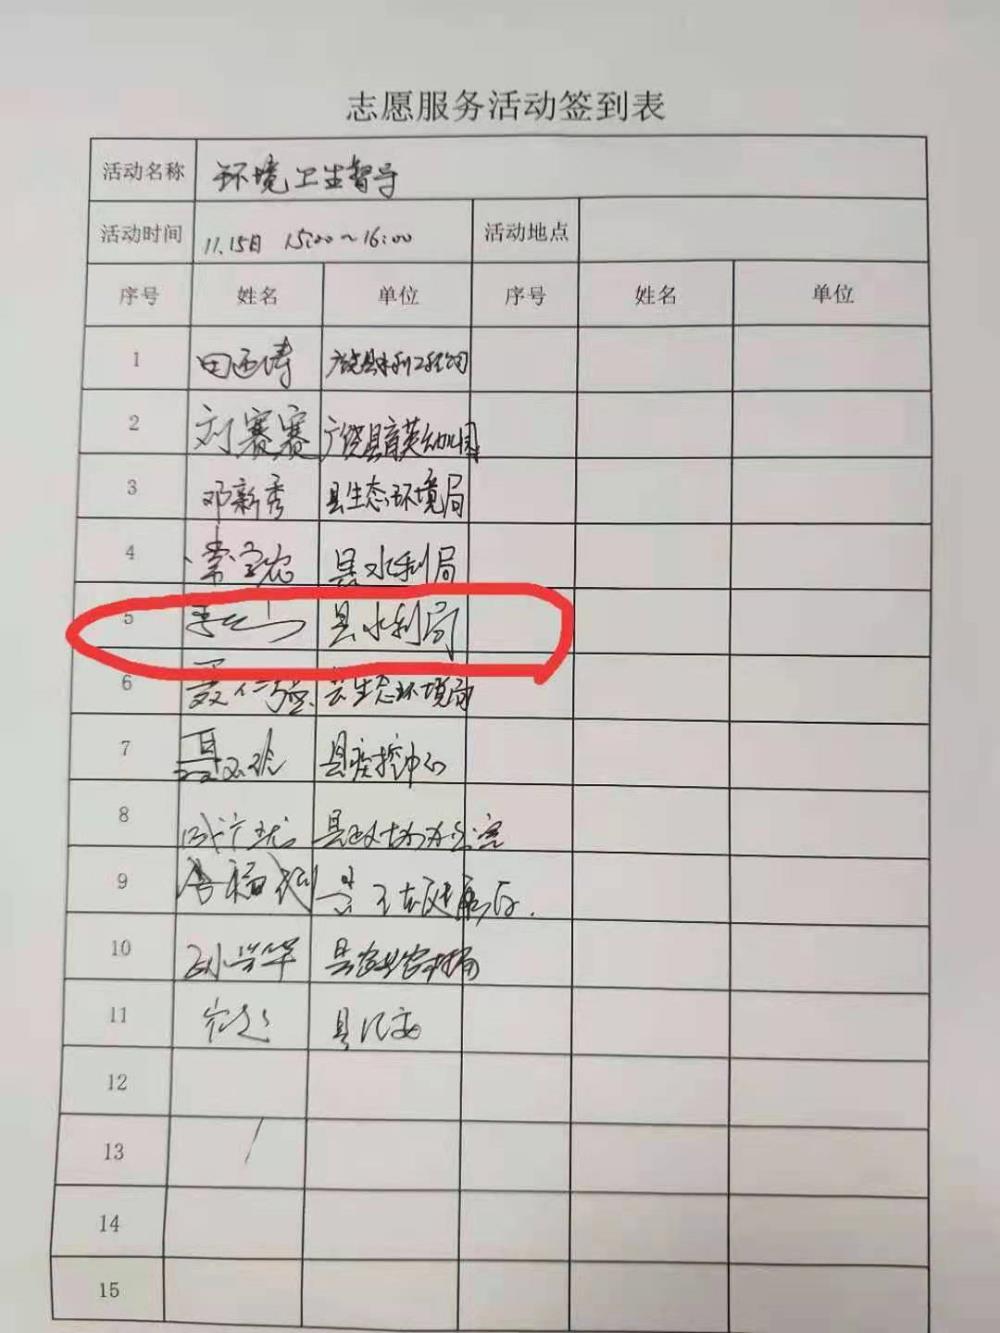 志愿服务活动签到表
活动名称 环境卫生督导
活动时间 11.15日 15:00~16:00 活动地点
序号 姓名 单位 序号 姓名 单位
1 田 广饶县水利工程公司
2 刘赛赛 广饶县育英幼儿园
3 邓新秀 县生态环境局
4 县水利局
5 县水利局
6 县生态环境局
7 县疾控中心
8 县政协办公室
9 县
10 孙兴华 县农业农村局
11 县
12
13
14
15